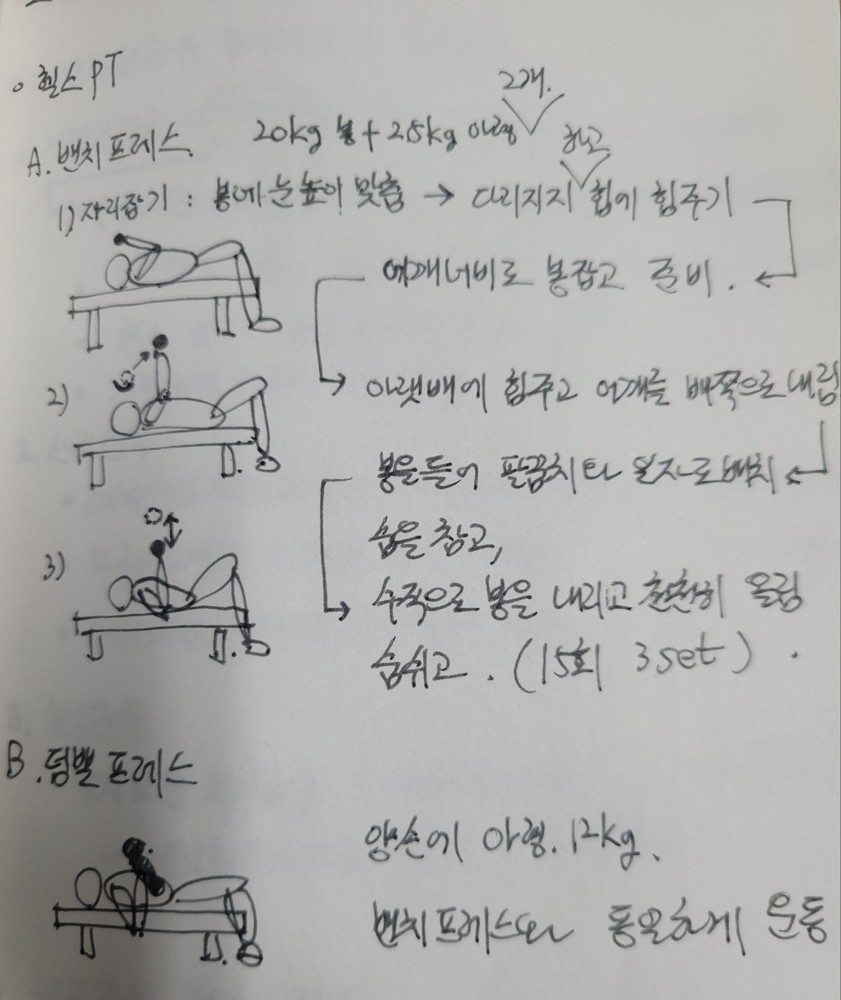 ◦ 헬스 PT
A. 벤치프레스. 20kg 봉 + 25kg 아령 2개.
1) 자리잡기 : 봉에 눈높이 맞춤 → 다리지지 하고 힙에 힘주기
어깨너비로 봉잡고 준비.
2)
아랫배에 힘주고 어깨를 배쪽으로 내림
봉을 들어 팔꿈치 일자로 배치
숨을 참고,
3)
수직으로 봉을 내리고 천천히 올림
숨쉬고. (15회 3set).
B. 덤벨 프레스
양손에 아령. 12kg.
벤치프레스와 동일하게 운동